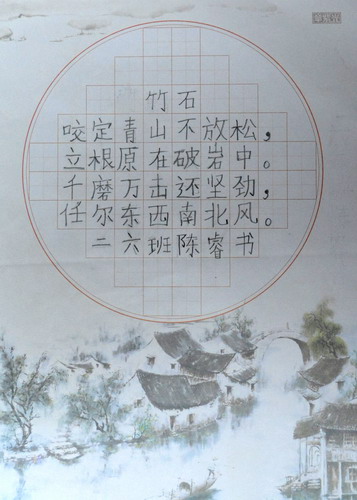 竹石
咬定青山不放松，
立根原在破岩中。
千磨万击还坚劲，
任尔东西南北风。
二六班陈睿书